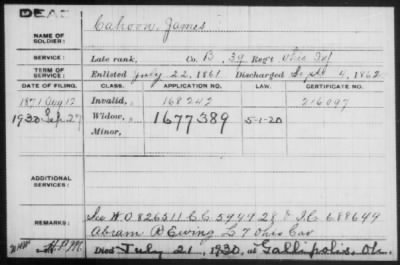 DEAD
Cahoon, James
NAME OF SOLDIER:
SERVICE: Late rank, Co. B, 39 Reg't Ohio Inf
TERM OF SERVICE: Enlisted July 22, 1861 Discharged Sept 4, 1862
DATE OF FILING. CLASS. APPLICATION NO. CERTIFICATE NO.
1871 Aug 12 Invalid, 168242 216097
1930 Sep 27 Widow, 1677389 5-1-20
Minor,
ADDITIONAL SERVICES:
REMARKS: See W.O 826511 C.C. 594928 & I.C 688649
Abram R Ewing L 7 Ohio Cav
H.P.M. Died July 21, 1930, at Gallipolis, Oh.